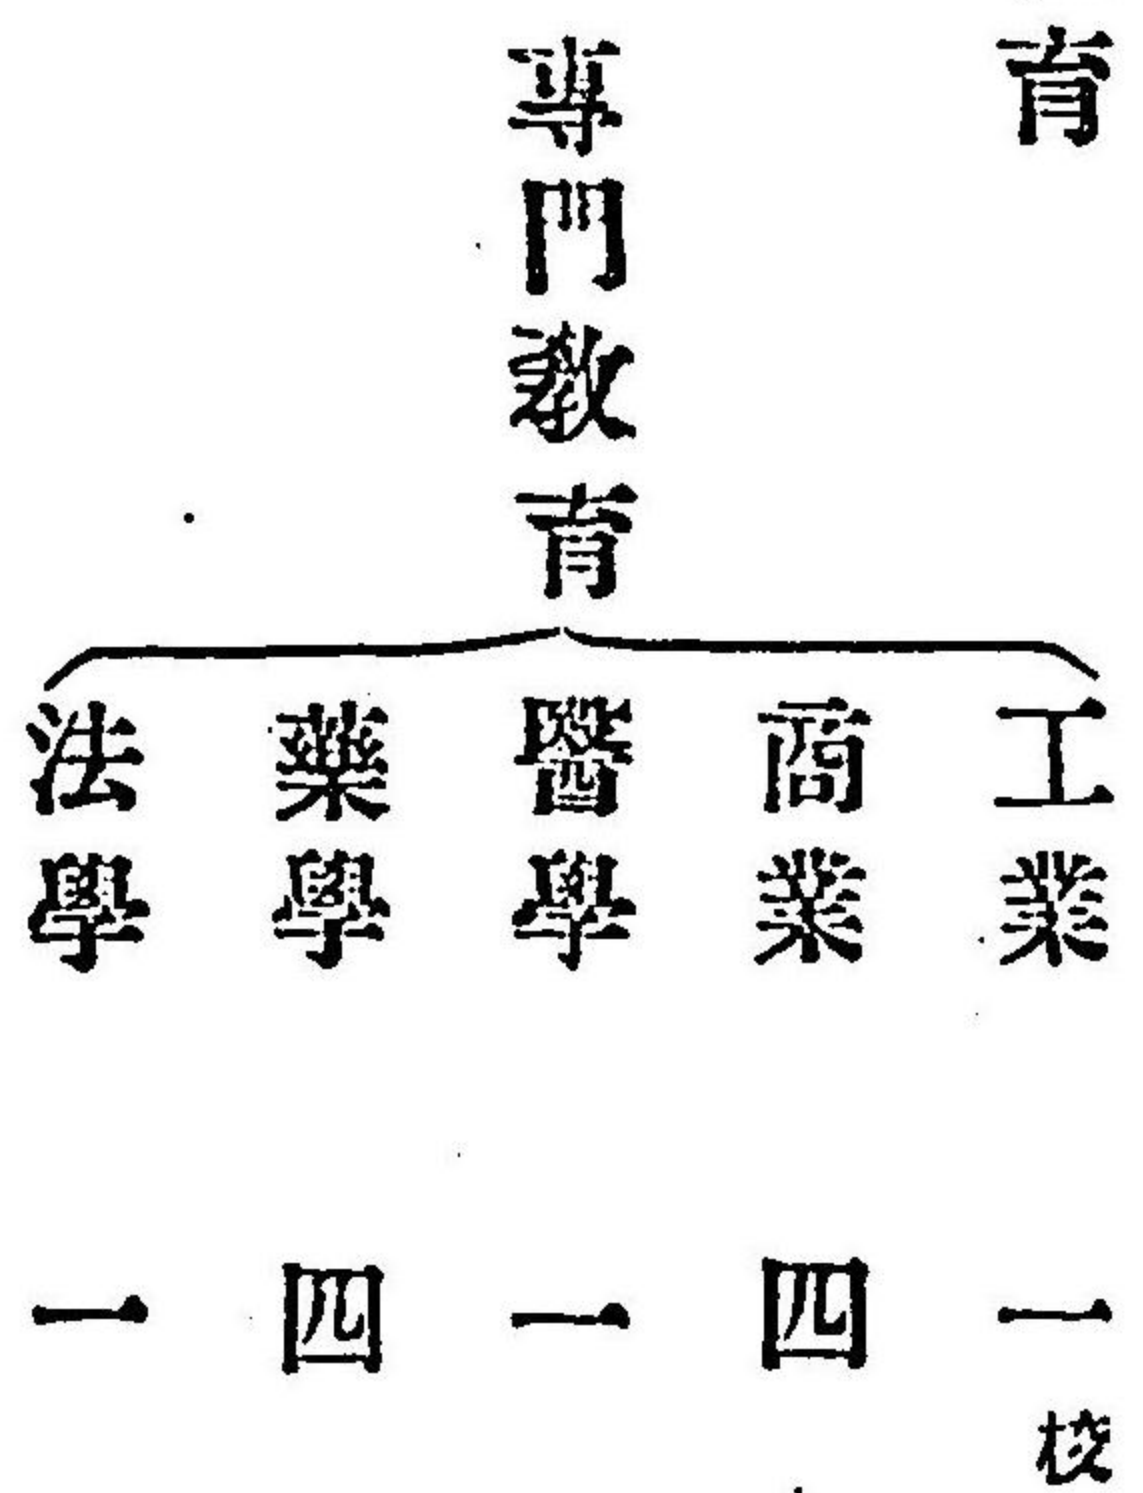 育
專門教育
工業 一校
商業 四
醫學 一
藥學 四
法學 一